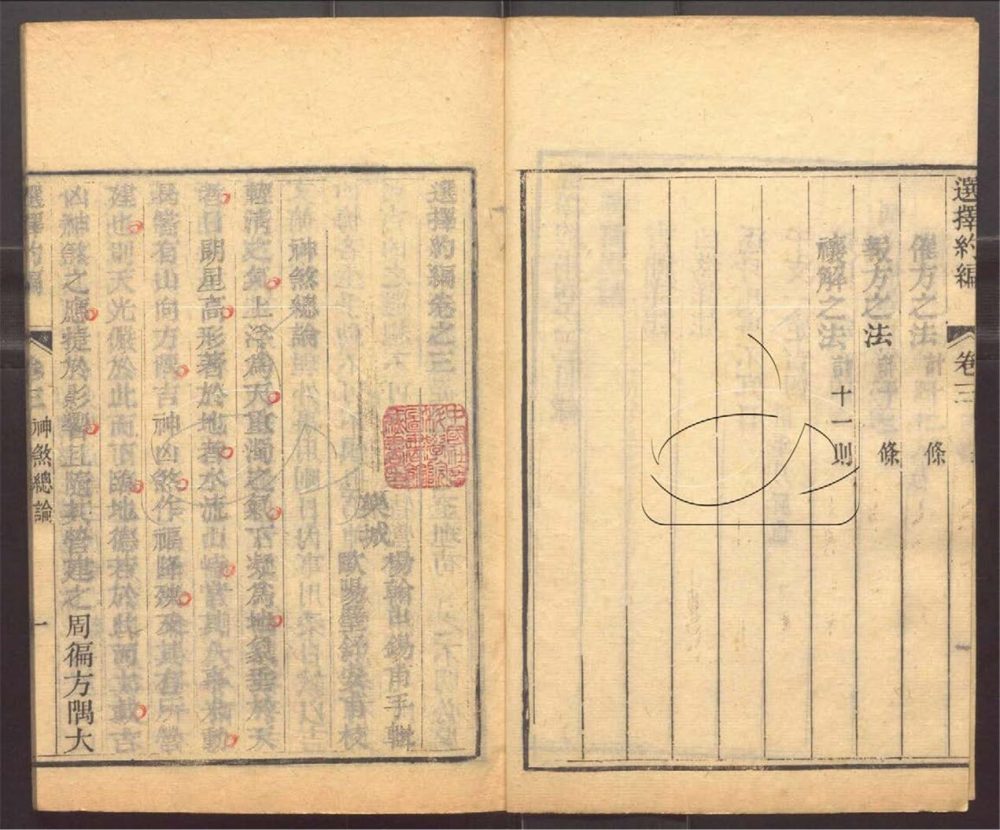 選擇約編 卷三
催方之法 計 條
報方之法 計十 條
禳解之法 計十一則
選擇約編卷之三
樂城 楊翰 錫甫手輯
歐陽 甫校
神煞總論
輕清之氣上浮爲天重濁之氣下凝爲地氣垂於天
者日朗星高形著於地者水流山峙當其人事未動
嘗有山向方隅吉神凶煞作福降殃及其有所營
建也則天光儼於此而下臨地德若於此而上載吉
凶神煞之應捷於影響且隨其營建之周徧方隅大
選擇約編 卷三 神煞總論 一